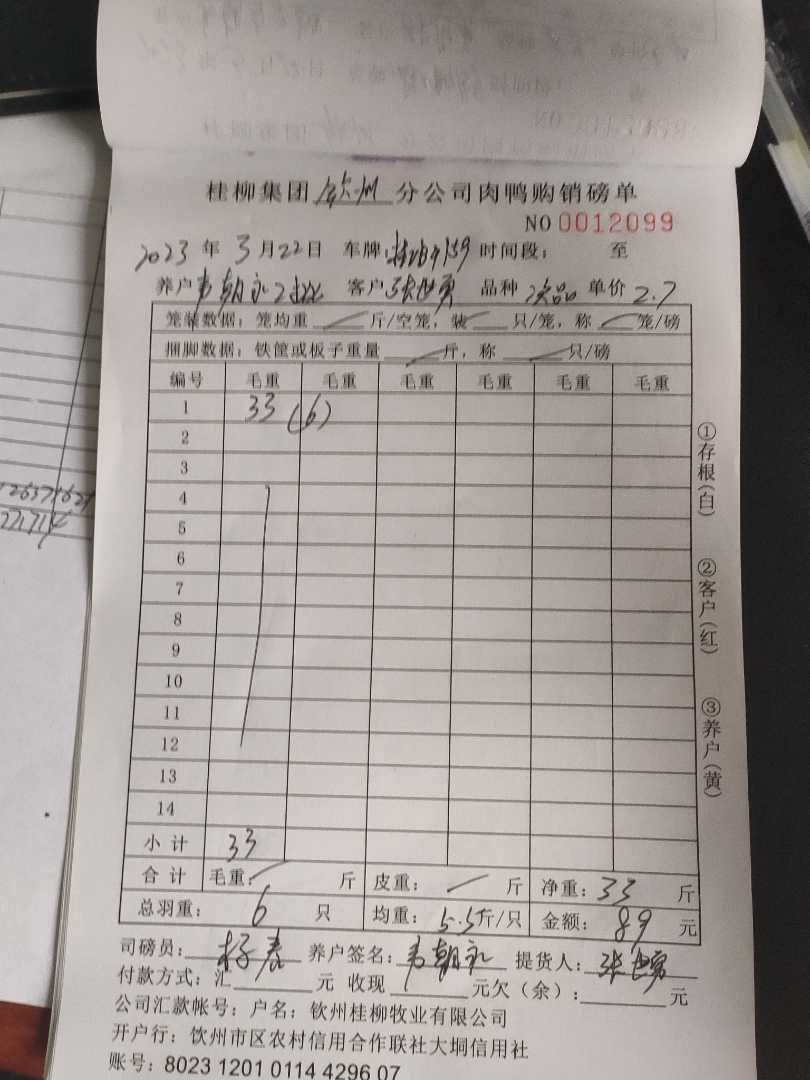 桂柳集团钦州分公司肉鸭购销磅单
NO 0012099
2023 年 3 月 22 日 车牌: 时间段: 至
养户 韦朝永 客户 张世勇 品种 次品 单价 2.7
笼装数据: 笼均重 斤/空笼, 装 只/笼, 称 笼/磅
捆脚数据: 铁筐或板子重量 斤, 称 只/磅
编号 毛重 毛重 毛重 毛重 毛重 毛重
1 33 (6)
2
3
4
5
6
7
8
9
10
11
12
13
14
小计 33
合计 毛重: 斤 皮重: 斤 净重: 33 斤
总羽重: 6 只 均重: 5.5斤/只 金额: 89 元
司磅员: 养户签名: 韦朝永 提货人: 张世勇
付款方式: 汇 元 收现 元欠(余): 元
公司汇款帐号: 户名: 钦州桂柳牧业有限公司
开户行: 钦州市区农村信用合作联社大垌信用社
账号: 8023 1201 0114 4296 07
①存根(白)
②客户(红)
③养户(黄)